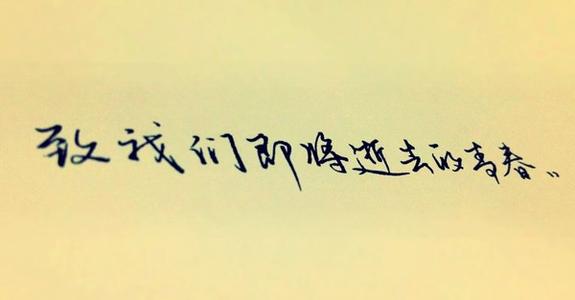 致我们即将逝去的青春。